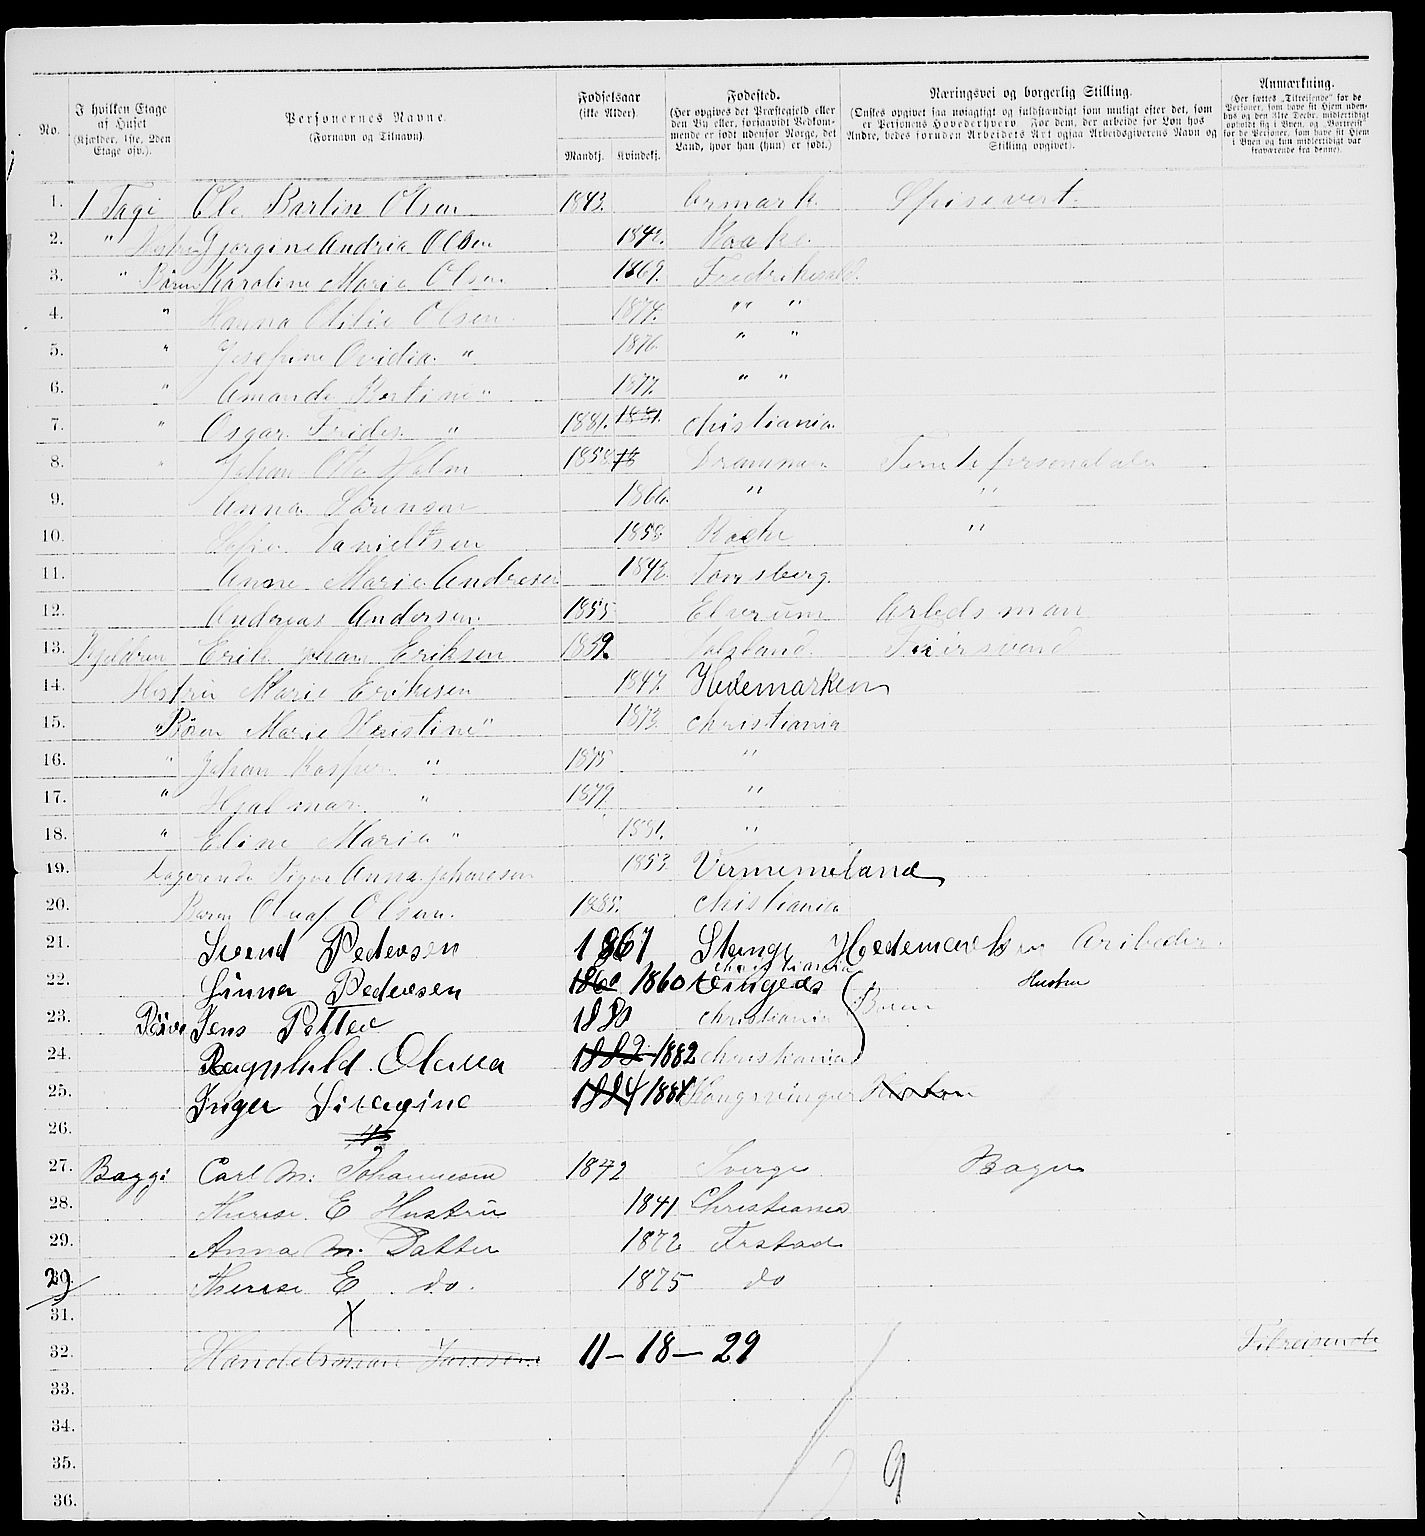 No.
I hvilken Etage af Huset (Kjælder, 1ste, 2den Etage osv.).
Personernes Navne. (Fornavn og Tilnavn).
Fødselsaar (ikke Alder). Mandkj. Kvindekj.
Fødested. (Her opgives det Præstegjeld eller den By eller, forsaavidt Vedkommende er født udenfor Norge, det Land, hvor han (hun) er født.)
Næringsvei og borgerlig Stilling. (Ønskes opgivet saa nøiagtigt og fuldstændigt som muligt efter det, som er Personens Hovederhverv. For dem, der arbeide for Løn hos Andre, bedes foruden Arbeidets Art ogsaa Arbeidsgiverens Navn og Stilling opgivet).
Anmærkning. (Her sættes „Tilreisende" for de Personer, som have sit Hjem udenbys og den 31te Decbr. midlertidigt opholdt sig i Byen, og „Bortreist" for de Personer, som have sit Hjem i Byen og kun midlertidigt var fraværende fra denne).
1. 1 Tagi Ole Bartin Olsen 1843. Aremark Spisevert.
2. " Hustru Gjorgine Andria Olsen 1842. Raake
3. " Børn Karoline Maria Olsen 1869. Fredrikshald.
4. " Hanna Otilie Olsen 1874. " "
5. " Josefine Ovidia " 1876. " "
6. " Amanda Bertine " 1877. " "
7. " Osgar Frider " 1881. 1881. christiania
8. " Johan Otto Holm 1858 Drammen
9. Anna Sørensen 1860. " "
10. Sofie Danieltsen 1858 Raake "
11. Anne Marie Andresen 1842. Tønsberg.
12. Andreas Andersen 1855 Elverum Arbeds man
13. Kjeldren Erik Johan Eriksen 1859. Svend
14. Hustru Marie Eriksen 1847. Hedemarken
15. " Børn Marie Kristine " 1873. christiania
16. " Johan Kasper " 1875 "
17. " Hjalmar " 1879 "
18. " Eline Maria " 1881. "
19. Logerende Signe Anna Johansen 1853. Vermmeland
20. Barn Oluaf Olsen. 1885. christiania
21. Svend Pedersen 1861 Stange Hedemarken Arbeder.
22. Linna Pedersen 1860 1860 christiania Vingers Hustru
23. Børn Jens Petter 1880 christiania Børn
24. Ragnhild Olava 1882 1882 christiania
25. Inger Siverine 1884 1884 Kongsvinger
26.
27. Baggi Carl M. Johannesen 1842 Sverge Bager
28. Therese E Hustru 1841 Christiania
29. Anna M. Datter 1872 Frstad
30. 29 Therese E do. 1875 do
31. X
32. Handelsmann Jansen 11 – 18 – 29 Tilreisende
33.
34.
35.
9
36.